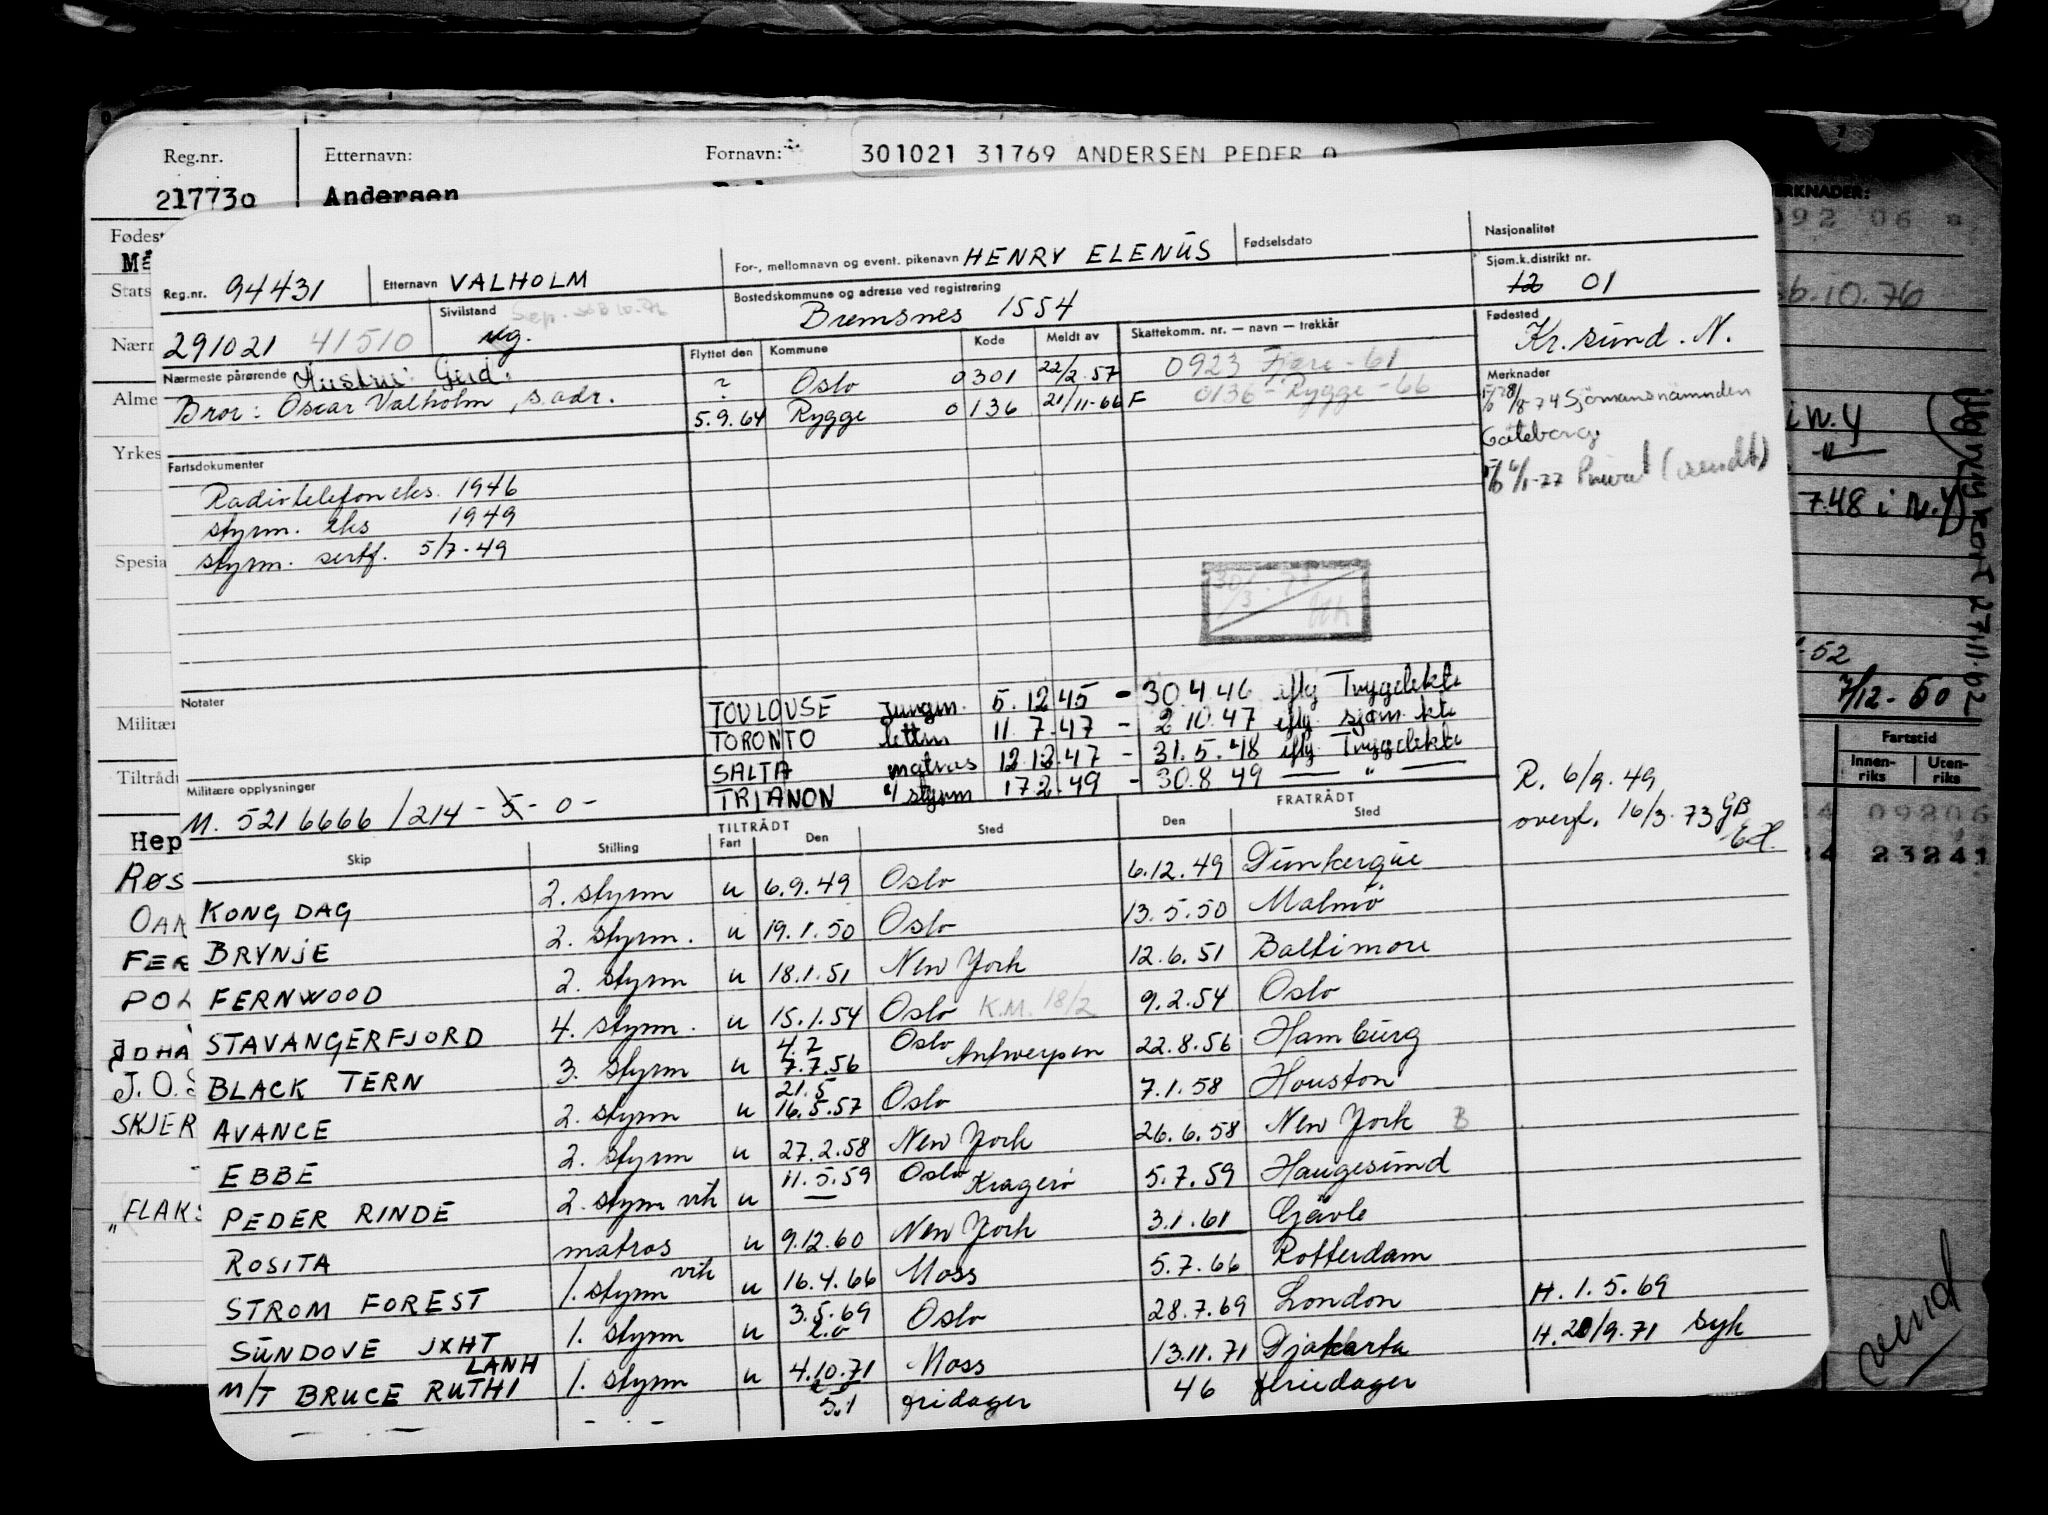 Reg.nr. Etternavn: Fornavn: 301021 31769 ANDERSEN PEDER O
217730 Andersen
Reg.nr. 94431 Etternavn VALHOLM For-, mellomnavn og event. pikenavn HENRY ELENUS Fødselsdato Nasjonalitet
291021 41510 Sivilstand ug. Bostedskommune og adresse ved registrering Bremsnes 1554 Sjøm.k.distrikt nr. 12 01
Nærmeste pårørende Hustru: Gerd.
Bror: Oscar Valholm, s. adr.
Flyttet den Kommune Kode Meldt av Skattekomm. nr. — navn — trekkår
? Oslo 0301 22/2.57 0923 Fjære-61
5.9.64 Rygge 0136 21/11-66 F 0136-Rygge-66
Fødested Kr.sund. N.
Merknader
8/8-74 Sjömansnämnden
Göteborg
6/1-77 Privat (vendt)
Fartsdokumenter
Radiotelefoneks. 1946
styrm. eks 1949
styrm. sertf. 5/7-49
Notater
TOULOUSE jungm. 5.12.45 - 30.4.46 iflg Trygdekto
TORONTO lettm 11.7.47 - 2.10.47 iflg. sjøm. kto
SALTA matros 12.12.47 - 31.5.48 iflg. Trygdekto
TRIANON 4/styrm 17.2.49 - 30.8.49 — " —
Militære opplysninger
M. 5216666/214-5-0-
R. 6/9.49
overf. 16/3.73 GB
EH.
TILTRÅDT FRATRÅDT
Skip Stilling Fart Den Sted Den Sted
KONG DAG 2. styrm u 6.9.49 Oslo 6.12.49 Dunkerque
BRYNJE 2. styrm. u 19.1.50 Oslo 13.5.50 Malmø
FERNWOOD 2. styrm u 18.1.51 New York 12.6.51 Baltimore
STAVANGERFJORD 4. styrm. u 15.1.54 Oslo K.M. 18/2 9.2.54 Oslo
BLACK TERN 3. styrm u 4.7 7.7.56 Oslo Antwerpen 22.8.56 Hamburg
AVANCE 2. styrm u 21.5 16.5.57 Oslo 7.1.58 Houston
EBBE 2. styrm u 27.2.58 New York 26.6.58 New York B
PEDER RINDE 2. styrm vik u 11.5.59 — Oslo Kragerø 5.7.59 Haugesund
ROSITA matros u 9.12.60 New York 3.1.61 Gävle
STROM FOREST 1. styrm vik u 16.4.66 Moss 5.7.66 Rotterdam
SUNDOVE JXHT 1. styrm u 3.5.69 Oslo 28.7.69 London H. 1.5.69
M/T BRUCE RUTHI LANH 1. styrm u 4.10.71 Moss 13.11.71 Djakarta H. 20/9.71 syk
— . — - . - 5.1 fridager 46 fridager
MERKNADER:
092 06
6.10.76
i N.Y
7.48 i N.Y
7/12-50
Fartstid
Innen-riks Uten-riks
09206
23241
vend
Fødest
Stats
Nærm
Alme
Yrkes
Spesia
Militær
Tiltrådt
Hep
FER
POL
J.O.S
SKJER
"FLAKS